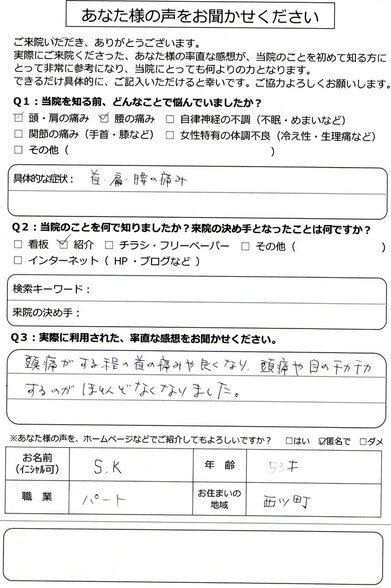 あなた様の声をお聞かせください
ご来院いただき、ありがとうございます。
実際にご来院くださった、あなた様の率直な感想が、当院のことを初めて知る方に
とって非常に参考になり、当院にとっても何よりの力となります。
できるだけ具体的に、ご記入いただけると幸いです。ご協力よろしくお願いします。
Q1：当院を知る前、どんなことで悩んでいましたか？
☑ 頭・肩の痛み ☑ 腰の痛み □ 自律神経の不調（不眠・めまいなど）
□ 関節の痛み（手首・膝など） □ 女性特有の体調不良（冷え性・生理痛など）
□ その他（ ）
具体的な症状： 首・肩・腰の痛み
Q2：当院のことを何で知りましたか？来院の決め手となったことは何ですか？
□ 看板 ☑ 紹介 □ チラシ・フリーペーパー □ その他（ ）
□ インターネット（ HP・ブログなど ）
検索キーワード：
来院の決め手：
Q3：実際に利用された、率直な感想をお聞かせください。
頭痛がする程の首の痛みや良くなり、頭痛や目のチカチカ
するのがほとんどなくなりました。
※あなた様の声を、ホームページなどでご紹介してもよろしいですか？ □はい ☑匿名で □ダメ
お名前 S.K 年 齢 53才
（イニシャル可）
職 業 パート お住まいの 西ツ町
地域